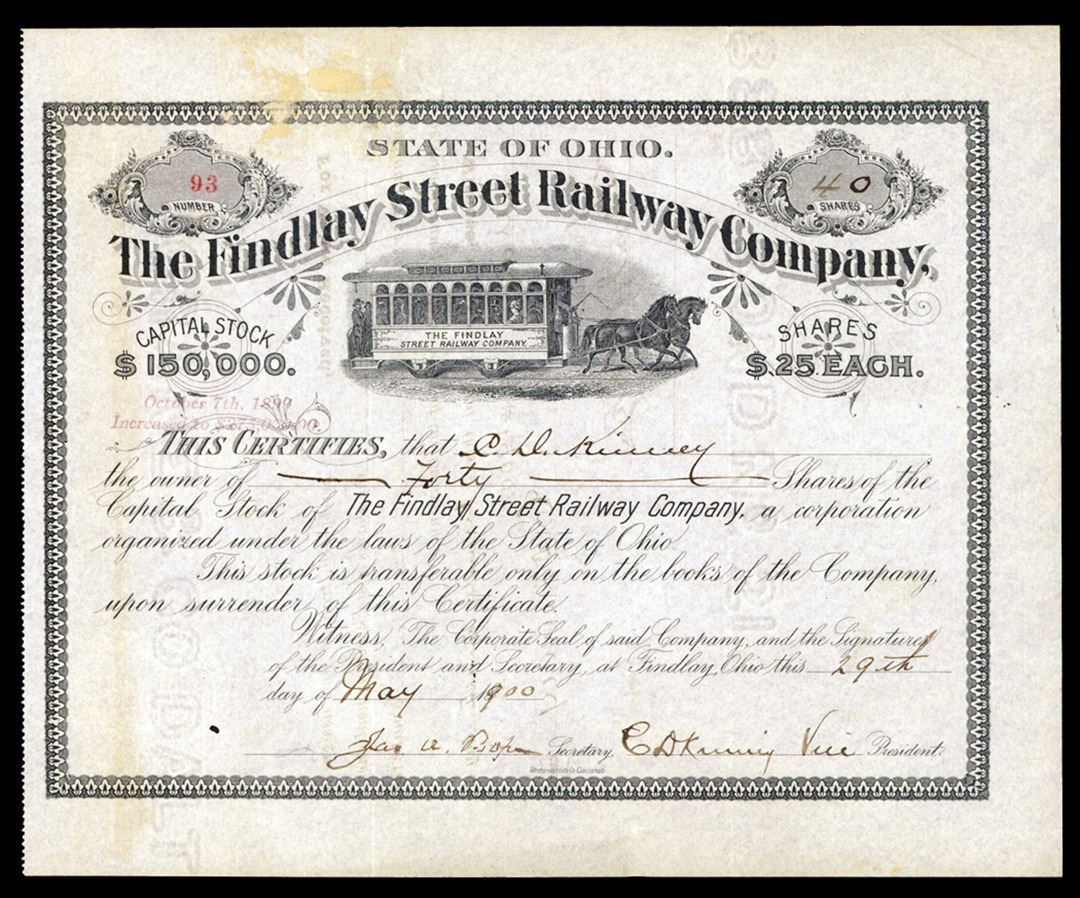 STATE OF OHIO.
93
NUMBER
40
SHARES
The Findlay Street Railway Company,
THE FINDLAY
STREET RAILWAY COMPANY.
CAPITAL STOCK
$150,000.
SHARES
$25 EACH.
October 7th, 1899
Increased to
THIS CERTIFIES, that C. D. Kinney
the owner of Forty Shares of the
Capital Stock of The Findlay Street Railway Company, a corporation
organized under the laws of the State of Ohio
This stock is transferable only on the books of the Company,
upon surrender of this Certificate.
Witness, The Corporate Seal of said Company, and the Signatures
of the President and Secretary, at Findlay, Ohio this 29th
day of May 1900
Jas Secretary. C D Kinney Vice President.